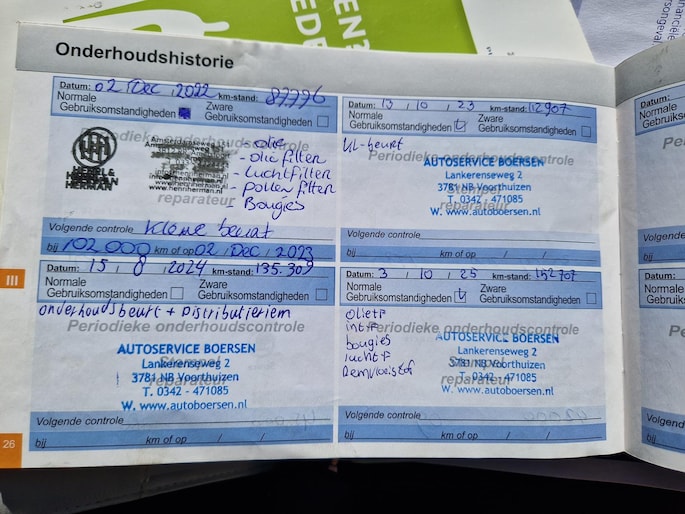 Onderhoudshistorie
Datum: 02 Dec 2022 km-stand: 87776
Normale
Gebruiksomstandigheden
Zware
Gebruiksomstandigheden
Periodieke onderhoudscontrole
HERMAN
- olie
- olie filter
- Luchtfilter
- pollen filter
- Bougies
www.hennherman.nl
reparateur
Volgende controle kleine beurt
bij 102 000 km of op 02 / Dec / 2023
Datum: 13 / 10 / 23 km-stand: 112907
Normale
Gebruiksomstandigheden
Zware
Gebruiksomstandigheden
kl-beurt
Periodieke onderhoudscontrole
AUTOSERVICE BOERSEN
Lankerenseweg 2
3781 NB Voorthuizen
Stempel
T. 0342 - 471085
reparateur
W. www.autoboersen.nl
Volgende controle
bij km of op / /
III
Datum: 15 / 8 / 2024 km-stand: 135.309
Normale
Gebruiksomstandigheden
Zware
Gebruiksomstandigheden
onderhoudsbeurt + Distributieriem
Periodieke onderhoudscontrole
AUTOSERVICE BOERSEN
Lankerenseweg 2
Stempel
3781 NB Voorthuizen
reparateur
T. 0342 - 471085
W. www.autoboersen.nl
Volgende controle
bij km of op / /
Datum: 3 / 10 / 25 km-stand: 152707
Normale
Gebruiksomstandigheden
Zware
Gebruiksomstandigheden
olie+F
int.F
bougies
lucht F
Remvloeistof
Periodieke onderhoudscontrole
AUTOSERVICE BOERSEN
Lankerenseweg 2
3781 NB Voorthuizen
Stempel
T. 0342 - 471085
reparateur
W. www.autoboersen.nl
Volgende controle
bij km of op / /
26
Datum:
Normale
Gebruiksoms
Datum:
Normale
Gebruiksom
Volgende
bij